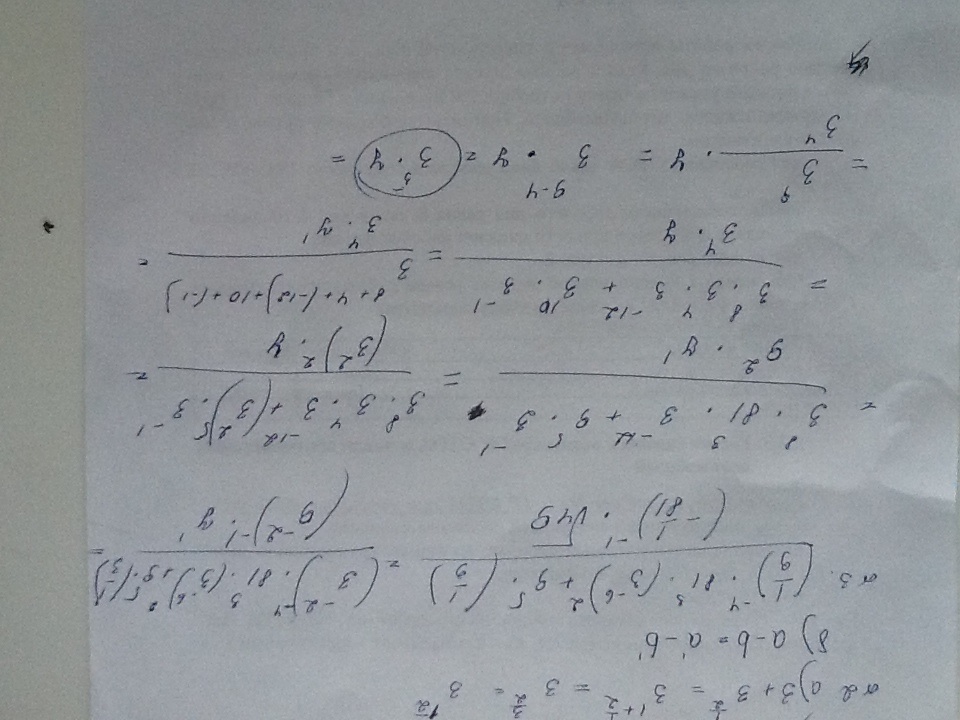 №2 а) 3 + 3^(1/2) = 3^(1+1/2) = 3^(3/2) = 3^(1 1/2)
б) a - b = a¹ - b¹
№3. ((1/9)⁻⁴ · 81³ · (3⁻⁶)² + 9⁵ · (1/9)) / ((-1/81)⁻¹ · √49) = ((3⁻²)⁻⁴ · 81³ · (3⁻⁶)² + 9⁵ · (1/3)) / ((9⁻²)⁻¹ · 7¹) =
= (3⁸ · 81³ · 3⁻¹² + 9⁵ · 3⁻¹) / (9² · 7¹) = (3⁸ · 3⁴ · 3⁻¹² + (3²)⁵ · 3⁻¹) / ((3²)² · 7) =
= (3⁸ · 3⁴ · 3⁻¹² + 3¹⁰ · 3⁻¹) / (3⁴ · 7) = 3^(8+4+(-12)+10+(-1)) / (3⁴ · 7¹) =
= 3⁹/3⁴ · 7 = 3⁹⁻⁴ · 7 = 3⁵ · 7 =